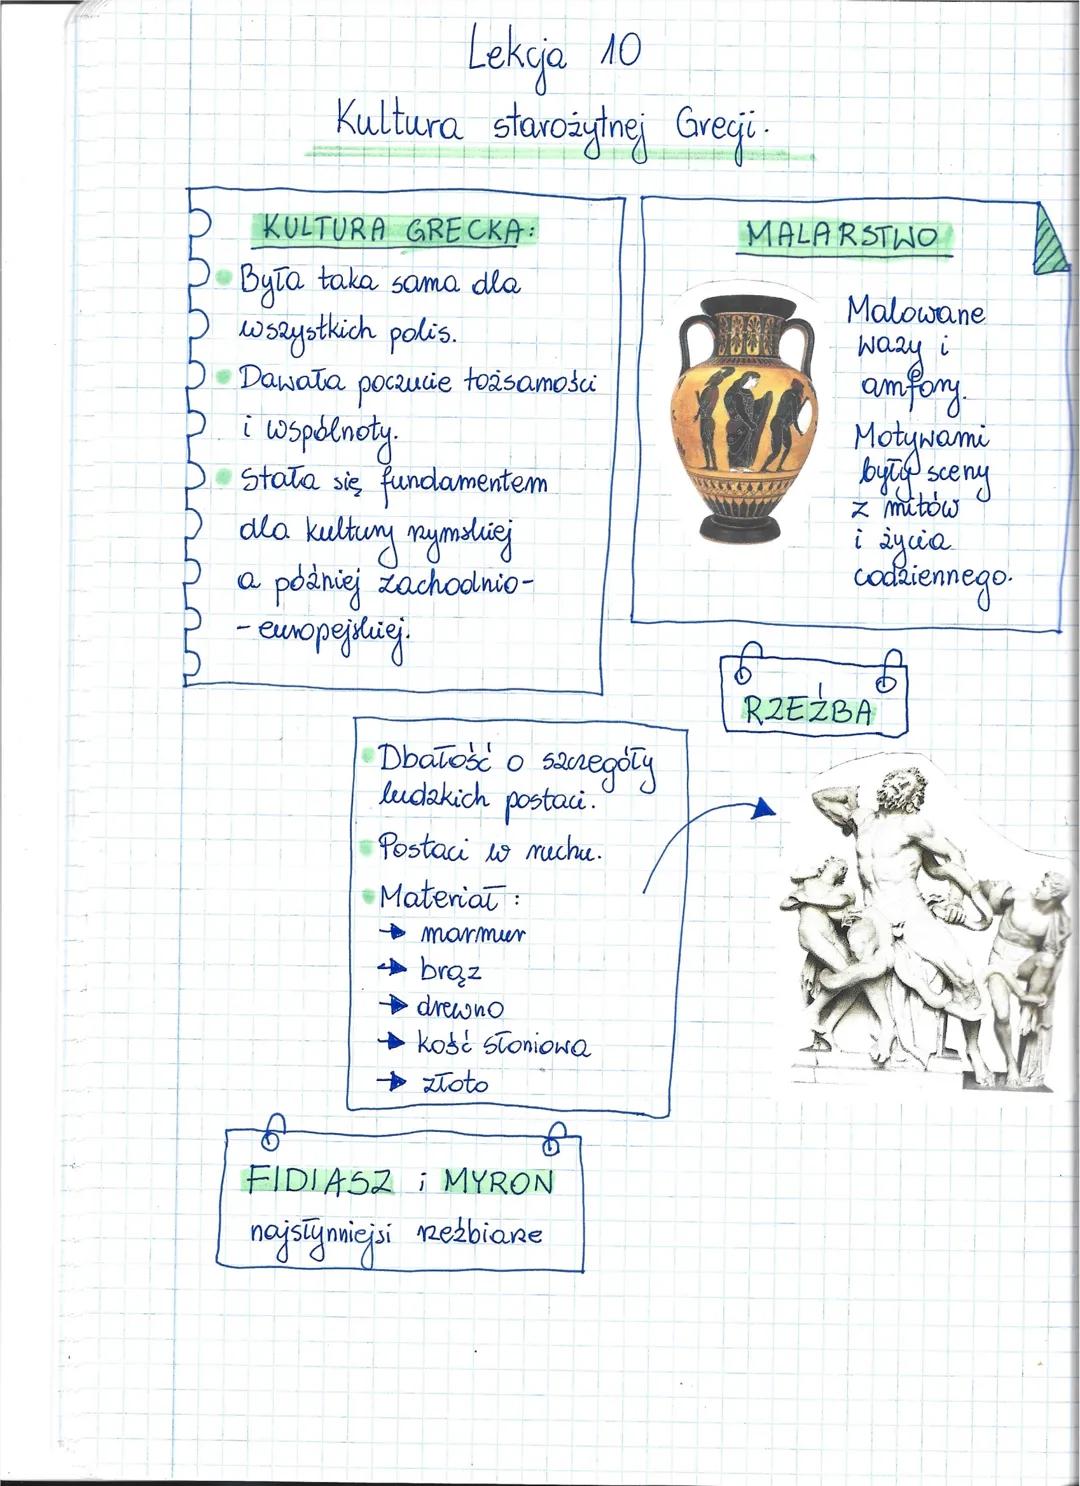 Lekcja 10
Kultura starożytnej Grecji.
KULTURA GRECKA:
Była taka sama dla
wszystkich polis.
Dawała poczucie tożsamości
i wspólnoty.
Stała się fundamentem
dla kultury rzymskiej
a później zachodnio-
-europejskiej.
MALARSTWO
Malowane
wazy i
amfory.
Motywami
były sceny
z mitów
i życia
codziennego.
RZEŹBA
Dbałość o szczegóły
ludzkich postaci.
Postaci w ruchu.
Materiał:
→ marmur
→ brąz
→ drewno
→ kość słoniowa
→ złoto
FIDIASZ i MYRON
najsłynniejsi rzeźbiarze